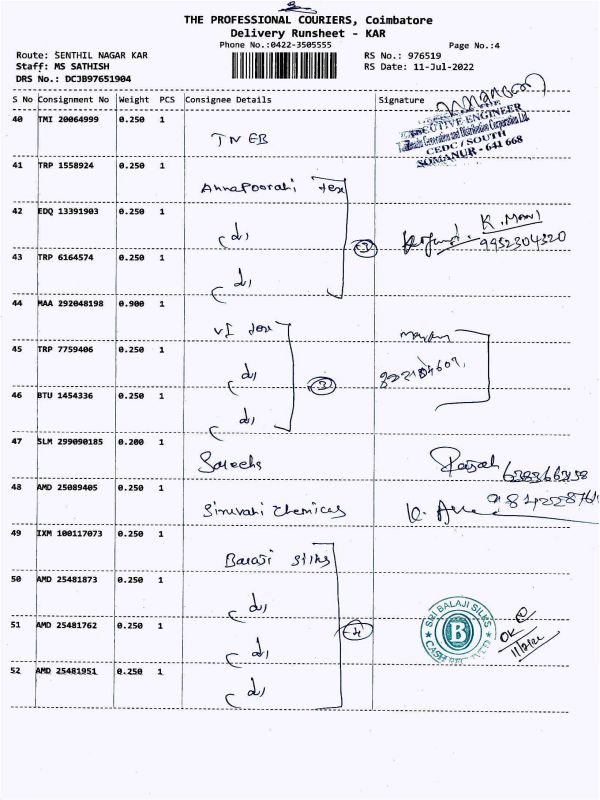 THE PROFESSIONAL COURIERS, Coimbatore
Delivery Runsheet - KAR
Phone No.:0422-3505555
Page No.:4
Route: SENTHIL NAGAR KAR
RS No.: 976519
Staff: MS SATHISH
RS Date: 11-Jul-2022
DRS No.: DCJB97651904
S No Consignment No Weight PCS Consignee Details Signature
EXECUTIVE ENGINEER
Generation and Distribution Corporation Ltd.
CEDC / SOUTH
SOMANUR - 641 668
40 TMI 20064999 0.250 1 TNEB
41 TRP 1558924 0.250 1 Annapoorani Tex
42 EDQ 13391903 0.250 1 K. Mani
9952304320
43 TRP 6164574 0.250 1
44 MAA 292048198 0.900 1 VI Tex
45 TRP 7759406 0.250 1
46 BTU 1454336 0.250 1
47 SLM 299090185 0.200 1
48 AMD 25089405 0.250 1 Siruvani Chemicals
49 IXM 100117073 0.250 1 Balaji Silks
50 AMD 25481873 0.250 1
51 AMD 25481762 0.250 1
SRI BALAJI SILKS
B
OK
52 AMD 25481951 0.250 1